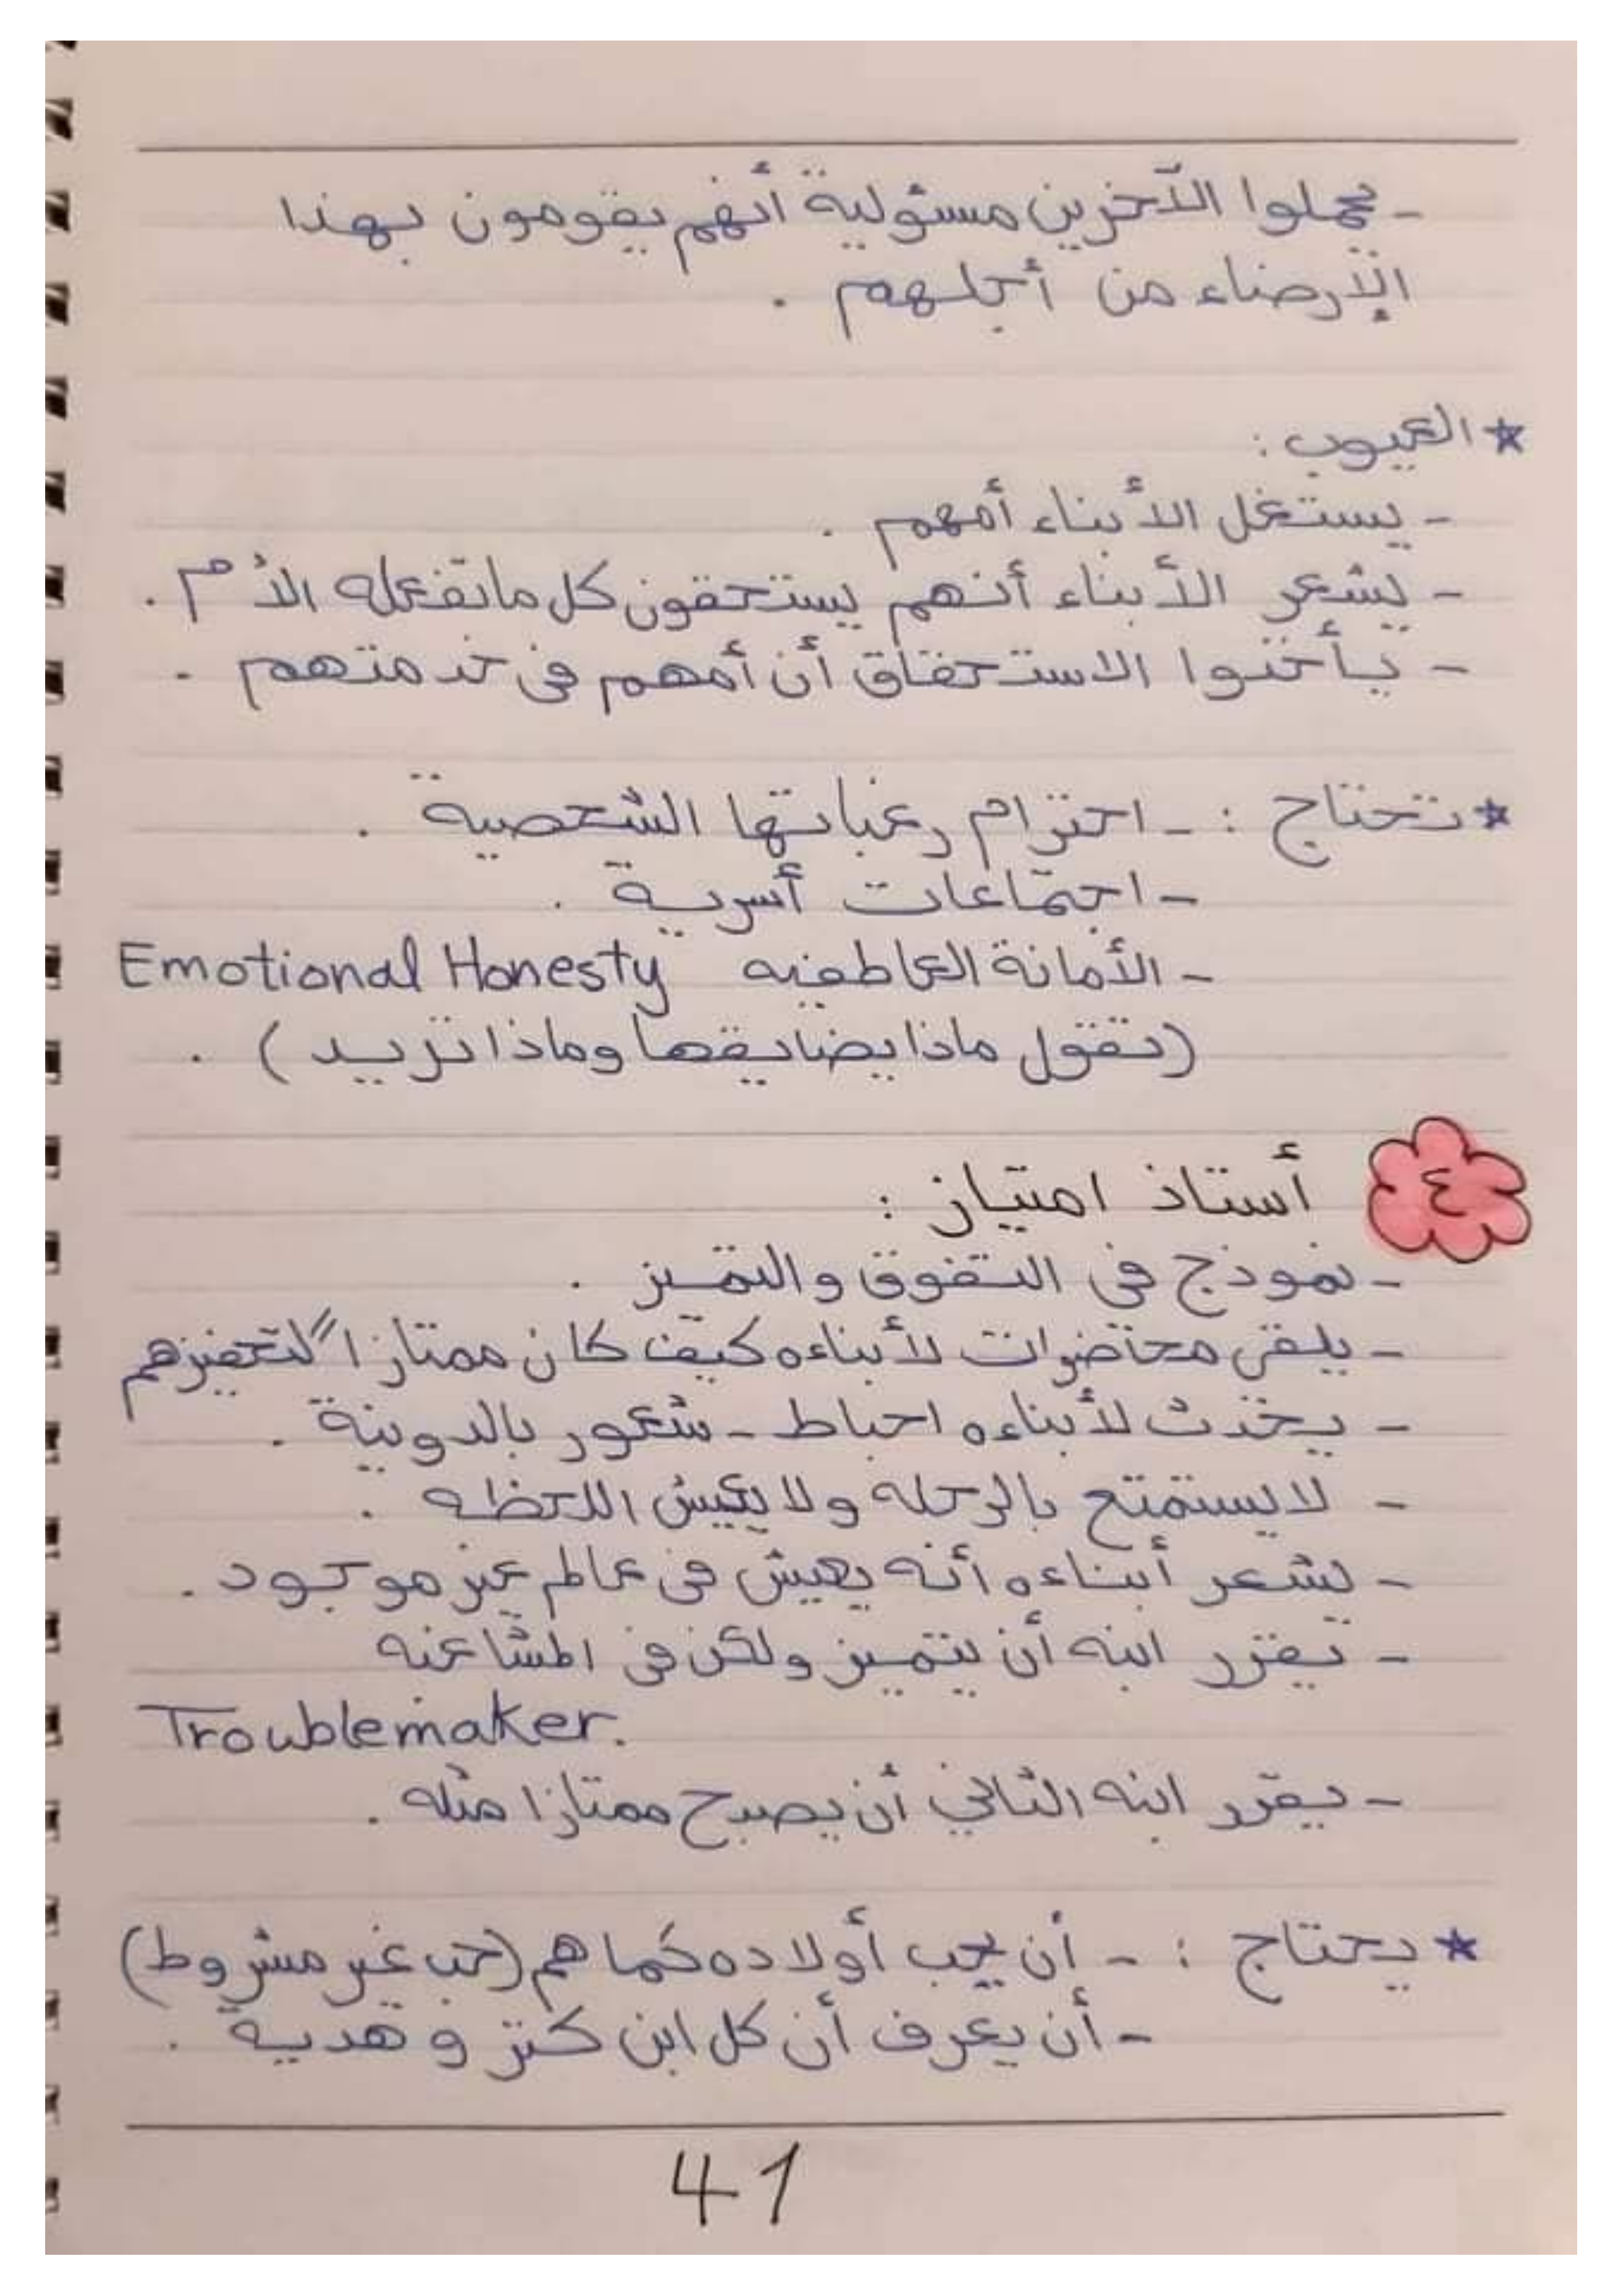 - يحملوا الآخرين مسئولية أنهم يقومون بهذا
الإرضاء من أجلهم .
* العيوب :
- يستغل الأبناء أمهم .
- يشعر الأبناء أنهم يستحقون كل ما تفعله الأم .
- يأخذوا الاستحقاق أن أمهم في خدمتهم .
* تحتاج : - احترام رغباتها الشخصية .
- اجتماعات أسرية .
- الأمانة العاطفيه Emotional Honesty
(تقول ماذا يضايقها وماذا تريد) .
٤ أستاذ امتياز :
- نموذج في التفوق والتميز .
- يلقي محاضرات لأبناءه كيف كان ممتازاً لتحفيزهم
- يحدث لأبناءه احباط - شعور بالدونية .
- لا يستمتع بالرحله ولا يعيش اللحظه .
- يشعر أبناءه أنه يعيش في عالم غير موجود .
- يقرر ابنه أن يتميز ولكن في المشاغبه
Troublemaker.
- يقرر ابنه الثاني أن يصبح ممتازا مثله .
* يحتاج : - أن يحب أولاده كما هم (حب غير مشروط)
- أن يعرف أن كل ابن كنز و هدية .
41